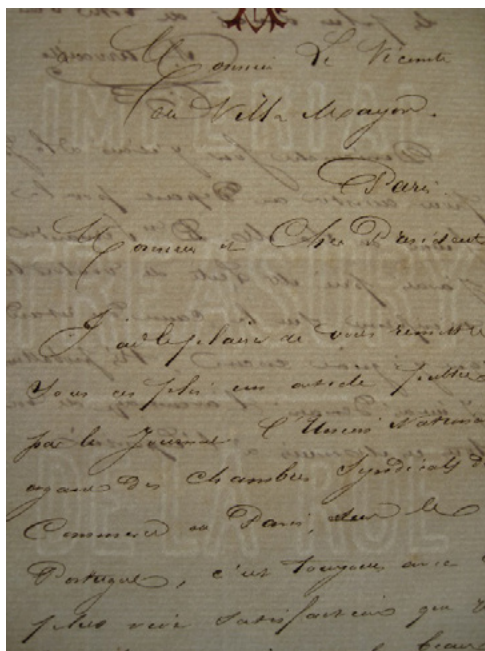 Monsieur Le Vicomte
de Villa Mayor.
Paris
Monsieur et Cher President
J'ai le plaisir de vous remettre
sous ce pli un article publié
par le Journal L'Union Nationa
organe des Chambres Syndicales d
Commerce de Paris, sur le
Portugal, c'est toujours avec
plus vive satisfaction que
IMPERIAL
TREASURY
DE LA RUE